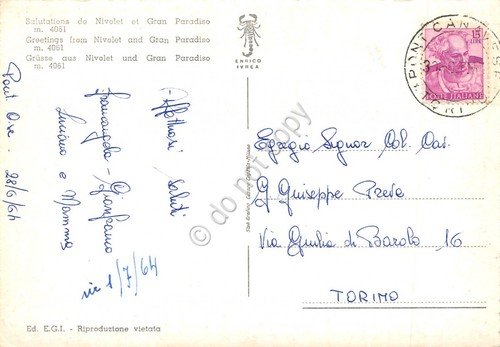 Salutations de Nivolet et Gran Paradiso
m. 4061
Greetings from Nivolet and Gran Paradiso
m. 4061
Grüsse aus Nivolet und Gran Paradiso
m. 4061
ENRICO
IVREA
15
LIRE
POSTE ITALIANE
PONT CANAVESE
TORINO
Pont Cve. 28/6/64
Affettuosi saluti
Gianfranco
Luciano e Mamma
ric 1/7/64
Egregio Signor Col. Cav.
G. Giuseppe Preve
Via Giulia di Barolo 16
TORINO
do not copy
Ed. E.G.I. - Riproduzione vietata